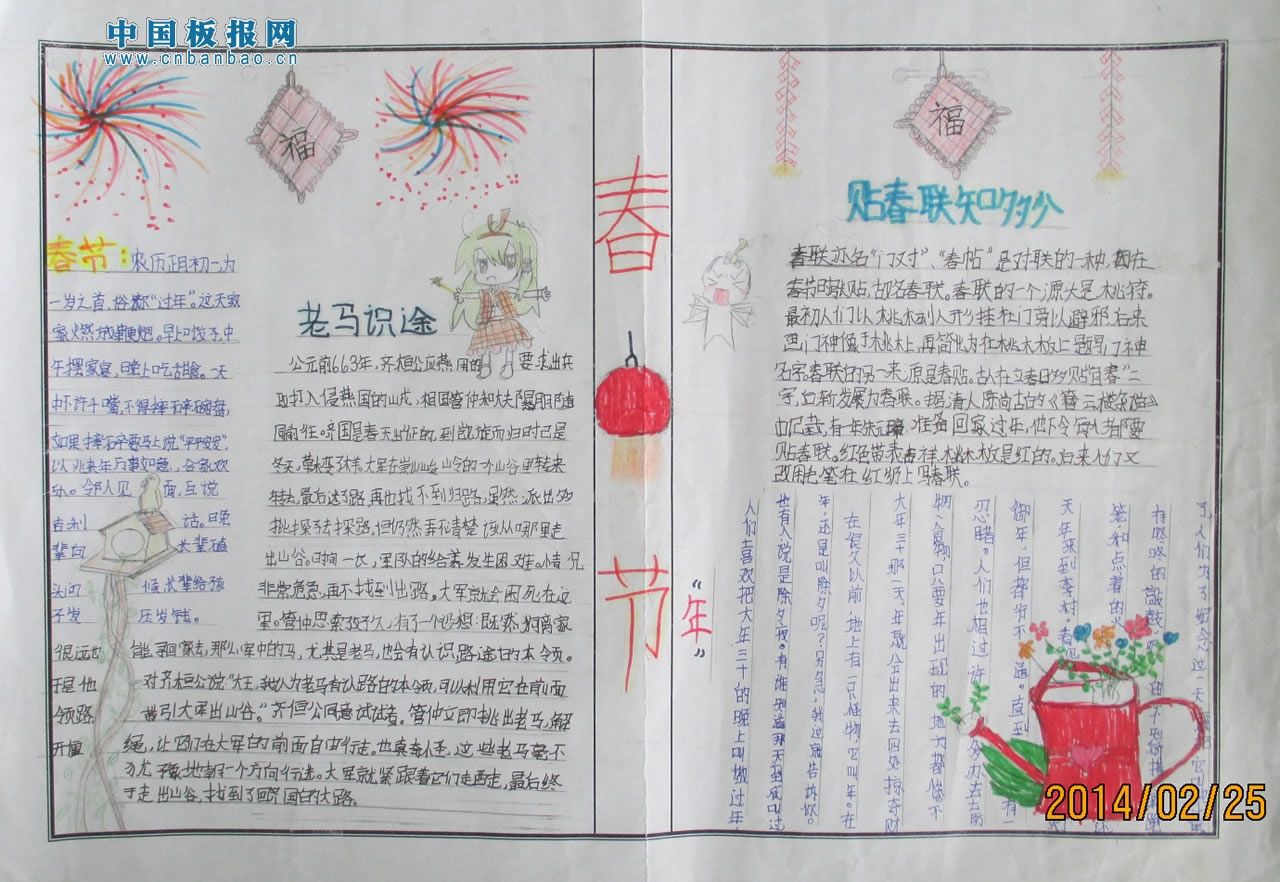 中国板报网
www.cnbanbao.com
福
福
春节
春节：农历正月初一，为
一岁之首，俗称“过年”。这天家
家燃放鞭炮。早上吃饺子，中
午摆家宴，晚上吃甜食。一天
中不许斗嘴，不得摔碎碗盘，
如果摔碎要马上说“平平安安”，
以兆来年万事如意、合家欢
乐。邻人见面，互说
吉利话。晚
辈向长辈磕
头问候长辈给孩
子发压岁钱。
老马识途
公元前663年，齐桓公应燕国的要求出兵
攻打入侵燕国的山戎，相国管仲和大夫隰朋随
同前往。齐国是春天出征的，到凯旋而归时已是
冬天，草木变了样。大军在崇山峻岭的一个山谷里转来
转去，最后迷了路，再也找不到归路。虽然派出多
批探子去探路，但仍然弄不清楚该从哪里走
出山谷。时间一长，军队的给养发生困难。情况
非常危急，再不找到出路。大军就会困死在这
里。管仲思索了好久，有了一个妙想：既然狗离家
很远也能寻回家去，那么军中的马，尤其是老马，也会有认识路途的本领。
于是他对齐桓公说“大王，我认为老马有认路的本领，可以利用它在前面
领路带引大军出山谷。”齐恒公同意试试看。管仲立即挑出老马，解
开缰绳，让它们在大军的前面自由行走。也真奇怪，这些老马毫不
犹豫地朝一个方向行进。大军就紧跟着它们东走西走，最后终
于走出山谷，找到了回齐国的大路。
贴春联知多少
春联亦名“门对”、“春帖”是对联的一种，因在
春节时张贴，故名春联。春联的一个源头是桃符。
最初人们以桃木刻人形挂在门旁以避邪，后来
画门神像于桃木上，再简化为在桃木板上题写门神
名字。春联的另一来源是春贴。古人在立春日多贴“宜春”二
字，后渐发展为春联。据清人陈尚古的《簪云楼杂说》
中记载，有一年朱元璋准备回家过年，他下令每户人都要
贴春联。红色带表吉祥，桃木板是红的。后来人们又
改用毛笔在红纸上写春联。
“年”
人们喜欢把大年三十的晚上叫做过年
也有人说是除夕夜。有谁知道那天到底叫过
年，还是叫除夕呢？别急，我这就告诉你。
在很久以前，地上有一只怪物，它叫年。在
大年三十那一天，年就会出来去四处掠夺财
物、食物，只要年出现的地方都惨不
忍睹。人们也想过许多办法去防
御年，但都行不通。直到有一
天年来到李村，看见
笼，和点着的火
有咚咚的敲鼓
了，人们为了纪念这一天
2014/02/25